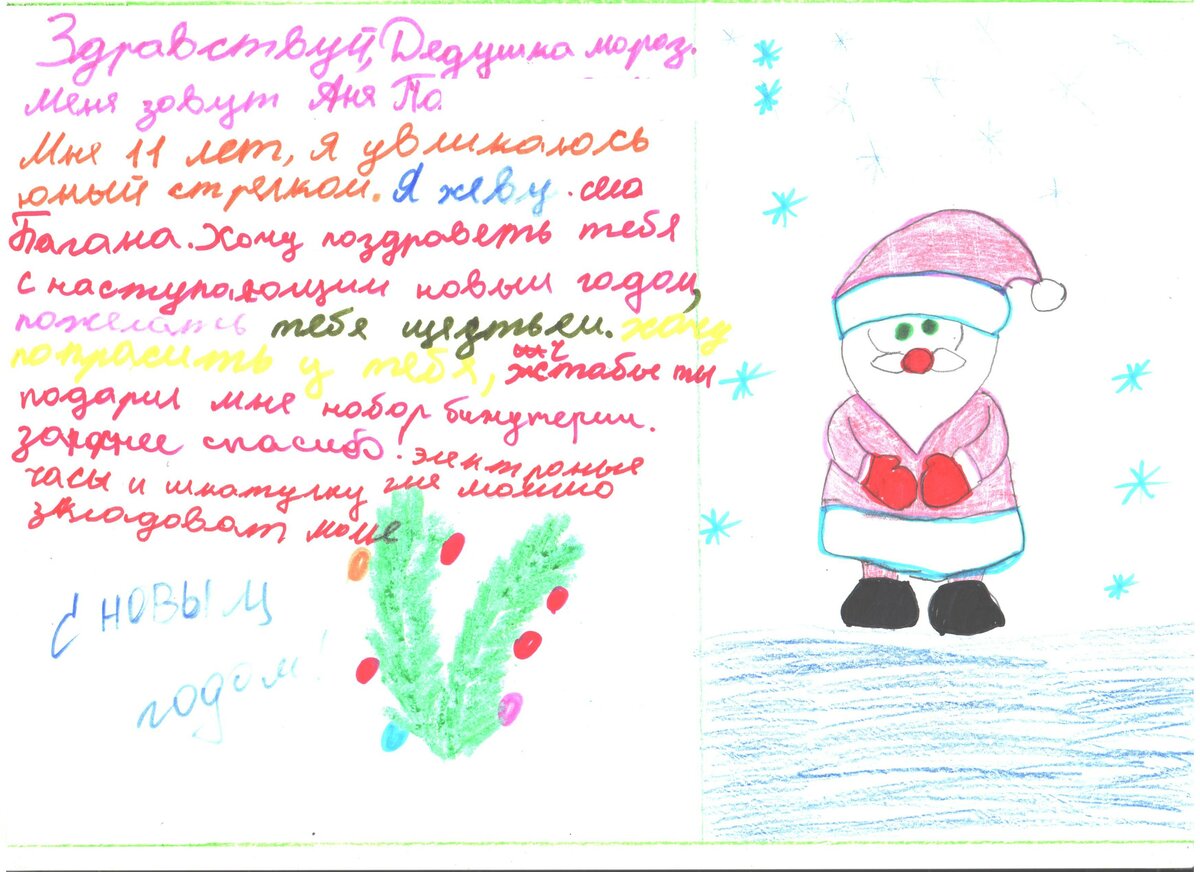 Здравствуй, Дедушка мороз.
Меня зовут Аня По
Мне 11 лет, я увликаюсь
юный стрелком. Я жеву. село
Пагана. Хочу поздраветь тебя
с наступающим новым годом,
пожелать тебе щядтьем. хочу
попрасить у тебя, чтабые ты
подарил мне набор бижутерии.
заранее спасибо. электроные
часы и шкатулку где можно
складоват мое
С новым
годом!